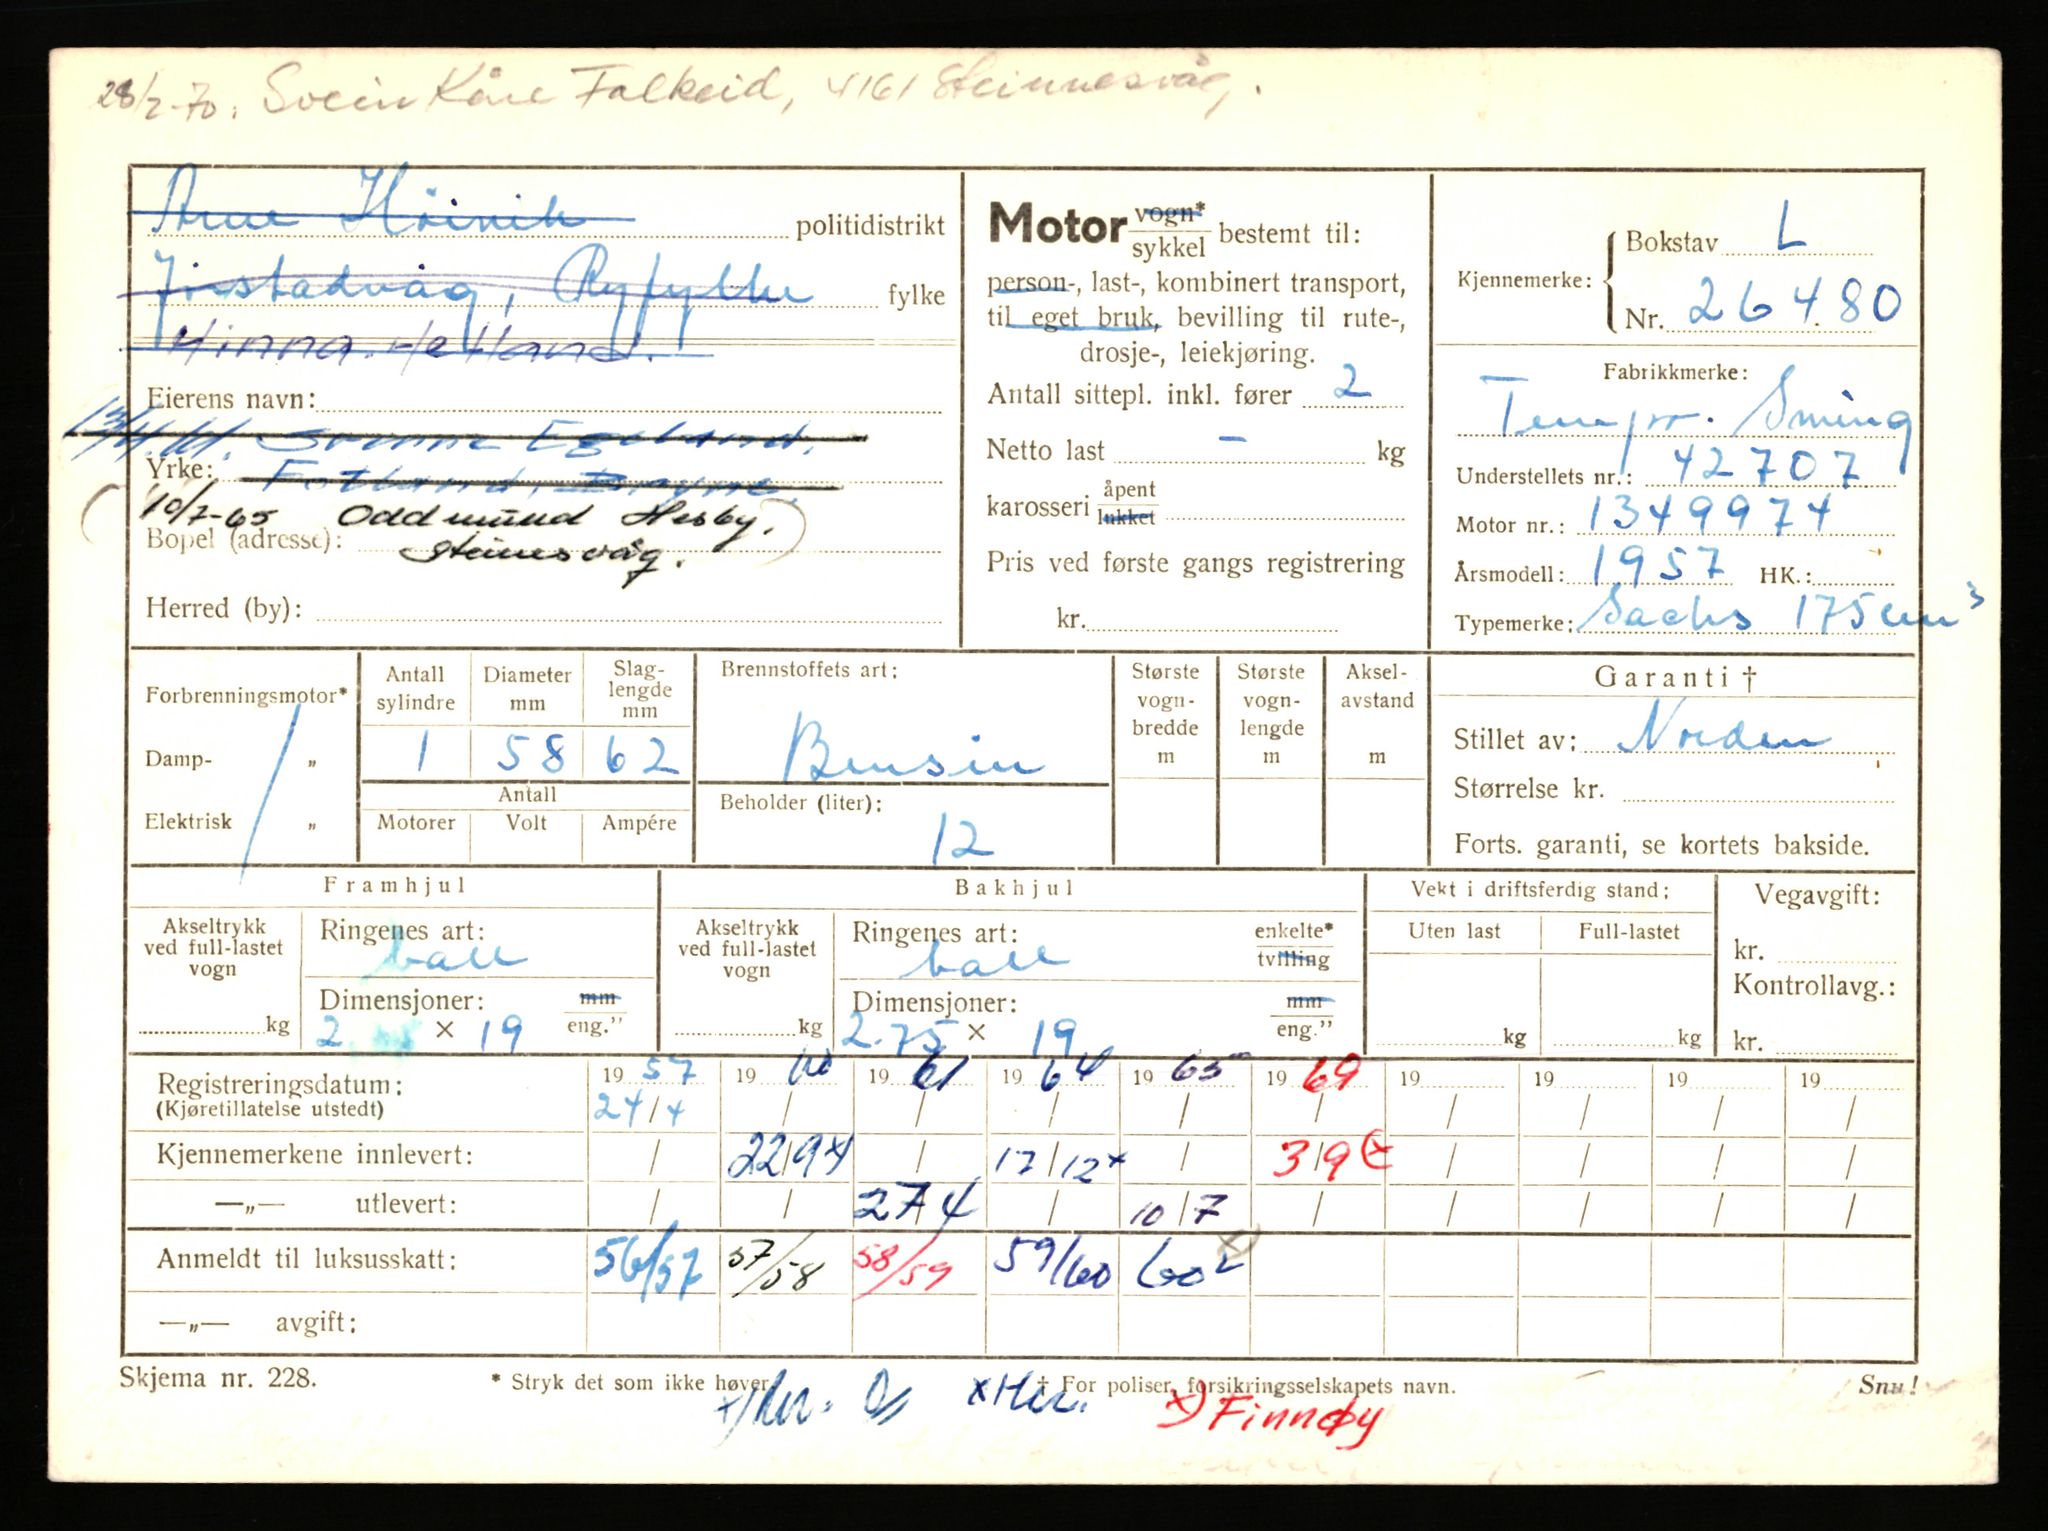 28/2-70. Svein Kåre Falkeid, 4161 Steinnesvåg.
Arne Høivik politidistrikt
Jøstadvåg, Ryfylke fylke
Hinna. Hetland.
Eierens navn:
Egeland.
Yrke: Fotland, Bryne.
10/7-65 Oddmund Hesby.
Bopel (adresse): Steinesvåg.
Herred (by):
Motor vogn* sykkel bestemt til:
person-, last-, kombinert transport,
til eget bruk, bevilling til rute-,
drosje-, leiekjøring.
Antall sittepl. inkl. fører 2
Netto last – kg
karosseri åpent lukket
Pris ved første gangs registrering
kr.
Kjennemerke: Bokstav L
Nr. 26480
Fabrikkmerke:
Tempo. Swing
Understellets nr.: 42707
Motor nr.: 1349974
Årsmodell: 1957 HK.:
Typemerke: Sachs 175 cm³
Forbrenningsmotor*
Damp- „
Elektrisk „
Antall sylindre 1
Diameter mm 58
Slag-lengde mm 62
Antall
Motorer Volt Ampére
Brennstoffets art:
Bensin
Beholder (liter):
12
Største vogn-bredde m
Største vogn-lengde m
Aksel-avstand m
Garanti †
Stillet av: Norden
Størrelse kr.
Forts. garanti, se kortets bakside.
Framhjul
Akseltrykk ved full-lastet vogn kg
Ringenes art: ball
Dimensjoner: mm eng."
2 × 19
Bakhjul
Akseltrykk ved full-lastet vogn kg
Ringenes art: ball enkelte* tvilling
Dimensjoner: mm eng."
2.75 × 19
Vekt i driftsferdig stand:
Uten last kg Full-lastet kg
Vegavgift:
kr.
Kontrollavg.:
kr.
Registreringsdatum: 19 57 19 60 19 61 19 64 19 65 19 69 19 19 19 19
(Kjøretillatelse utstedt) 24/4 / / / / / / / / /
Kjennemerkene innlevert: / 22/9 x / 17/12 x / 3/9 (x / / / /
—„— utlevert: / / 27/4 / 10/7 / / / / /
Anmeldt til luksusskatt: 56/57 57/58 58/59 59/60 60²
—„— avgift:
Skjema nr. 228. * Stryk det som ikke høver. † For poliser, forsikringsselskapets navn. Snu!
x) Finnøy